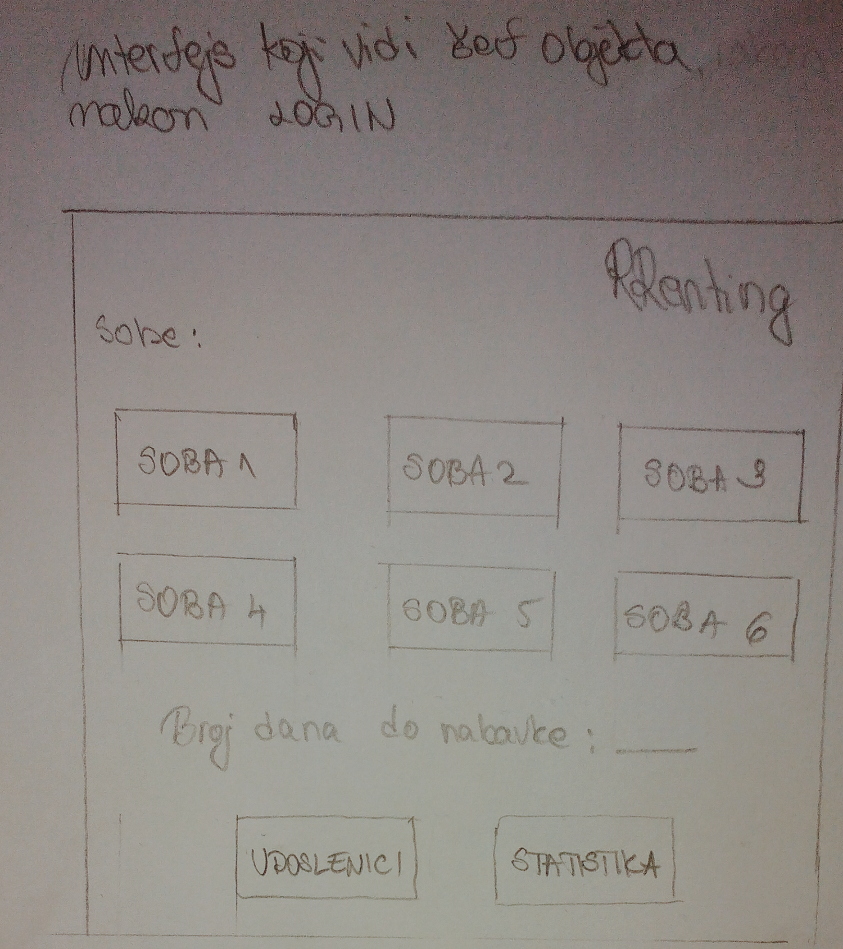 Interfejs koji vidi šef objekta,
nakon LOGIN
RRenting
Sobe:
SOBA 1
SOBA 2
SOBA 3
SOBA 4
SOBA 5
SOBA 6
Broj dana do nabavke: ____
UPOSLENICI
STATISTIKA